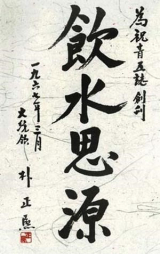 為祝青瓦誌 創刊
飲水思源
一九六七年 三月
大統領 朴正熙